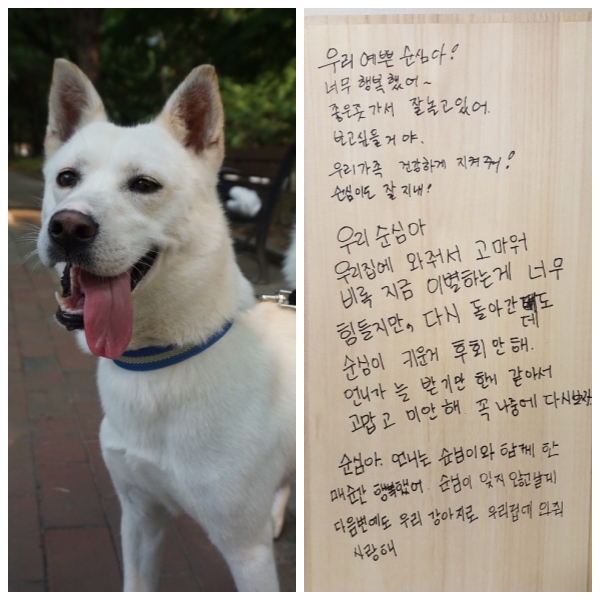 우리 예쁜 순심아!
너무 행복했어~
좋은곳 가서 잘 놀고있어.
보고싶을 거야.
우리가족 건강하게 지켜줘!
순심이도 잘 지내!
우리 순심아
우리집에 와줘서 고마워
비록 지금 이별하는게 너무
힘들지만, 다시 돌아간데도
순심이 키운게 후회 안해.
언니가 늘 받기만 한거 같아서
고맙고 미안해 꼭 나중에 다시보자
순심아. 언니는 순심이와 함께 한
매순간 행복했어. 순심이 잊지 않고살게
다음번에도 우리 강아지로 우리집에 와줘
사랑해